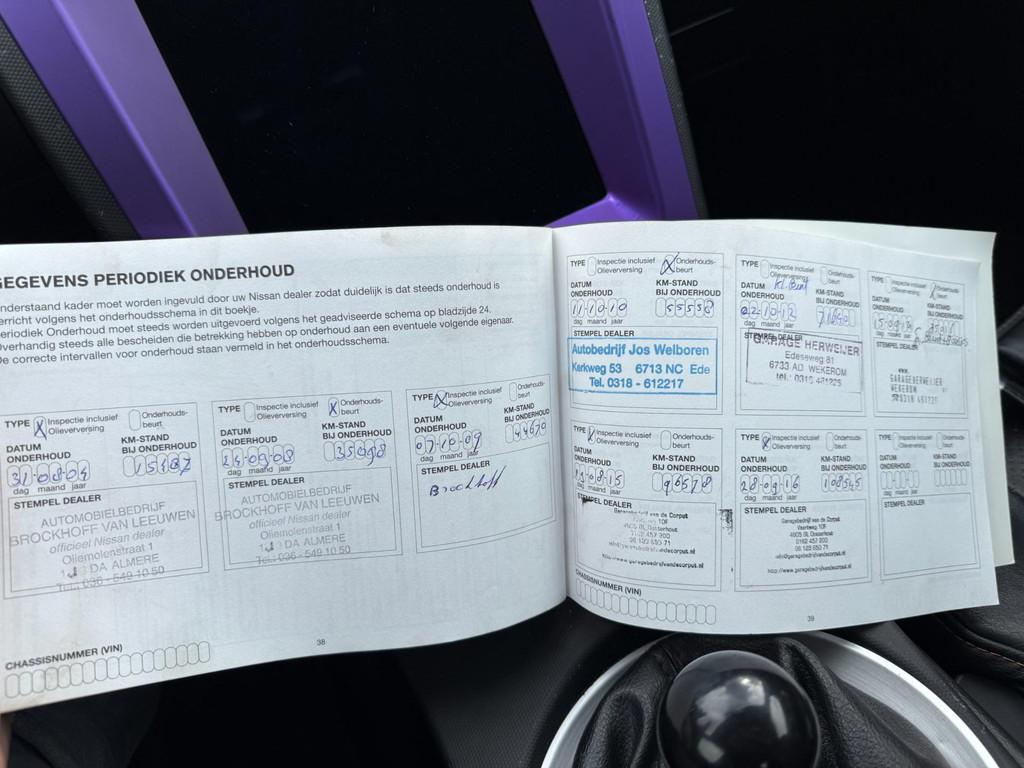 GEGEVENS PERIODIEK ONDERHOUD
nderstaand kader moet worden ingevuld door uw Nissan dealer zodat duidelijk is dat steeds onderhoud is
erricht volgens het onderhoudsschema in dit boekje.
eriodiek Onderhoud moet steeds worden uitgevoerd volgens het geadviseerde schema op bladzijde 24.
verhandig steeds alle bescheiden die betrekking hebben op onderhoud aan een eventuele volgende eigenaar.
e correcte intervallen voor onderhoud staan vermeld in het onderhoudsschema.
TYPE X Inspectie inclusief Olieverversing Onderhouds-beurt
DATUM ONDERHOUD KM-STAND BIJ ONDERHOUD
dag maand jaar
STEMPEL DEALER
AUTOMOBIELBEDRIJF
BROCKHOFF VAN LEEUWEN
officieel Nissan dealer
Oliemolenstraat 1
DA ALMERE
Tel. 036 - 549 10 50
TYPE Inspectie inclusief Olieverversing X Onderhouds-beurt
DATUM ONDERHOUD KM-STAND BIJ ONDERHOUD
35098
dag maand jaar
STEMPEL DEALER
AUTOMOBIELBEDRIJF
BROCKHOFF VAN LEEUWEN
officieel Nissan dealer
Oliemolenstraat 1
DA ALMERE
Tel. 036 - 549 10 50
TYPE X Inspectie inclusief Olieverversing Onderhouds-beurt
DATUM ONDERHOUD KM-STAND BIJ ONDERHOUD
07-10-09 44670
dag maand jaar
STEMPEL DEALER
Brockhoff
CHASSISNUMMER (VIN)
38
TYPE Inspectie inclusief Olieverversing X Onderhouds-beurt
DATUM ONDERHOUD KM-STAND BIJ ONDERHOUD
11-10-10 55538
dag maand jaar
STEMPEL DEALER
Autobedrijf Jos Welboren
Kerkweg 53 6713 NC Ede
Tel. 0318 - 612217
TYPE Inspectie inclusief Olieverversing Onderhouds-beurt
DATUM ONDERHOUD KM-STAND BIJ ONDERHOUD
22-10-12
dag maand jaar
STEMPEL DEALER
GARAGE HERWEIJER
Edeseweg 81
6733 AD WEKEROM
TYPE Inspectie inclusief Olieverversing Onderhouds-beurt
DATUM ONDERHOUD KM-STAND BIJ ONDERHOUD
dag maand jaar
STEMPEL DEALER
WEKEROM
TYPE Inspectie inclusief Olieverversing Onderhouds-beurt
DATUM ONDERHOUD KM-STAND BIJ ONDERHOUD
96578
dag maand jaar
STEMPEL DEALER
van de Corput
4905 BL Oosterhout
06 123 650 71
TYPE X Inspectie inclusief Olieverversing Onderhouds-beurt
DATUM ONDERHOUD KM-STAND BIJ ONDERHOUD
28-09-16 108545
dag maand jaar
STEMPEL DEALER
Garagebedrijf van de Corput
Vaartweg 10F
4905 BL Oosterhout
0162 457 200
06 123 650 71
info@garagebedrijfvandecorput.nl
http://www.garagebedrijfvandecorput.nl
TYPE Inspectie inclusief Olieverversing Onderhouds-beurt
DATUM ONDERHOUD KM-STAND BIJ ONDERHOUD
dag maand jaar
STEMPEL DEALER
CHASSISNUMMER (VIN)
39